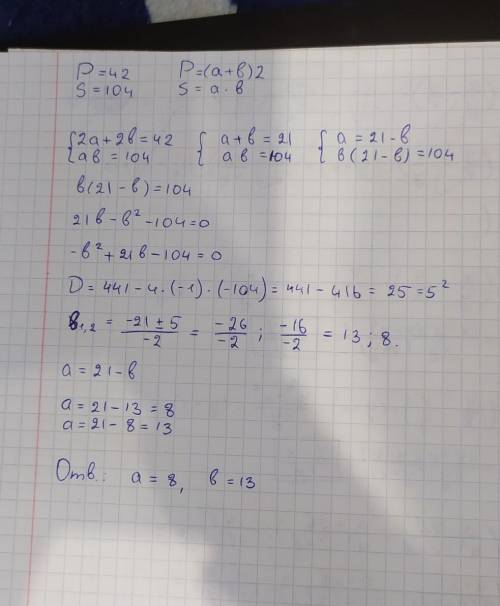 P=42 P=(a+b)2
S=104 S=a·b
{2a+2b=42 {a+b=21 {a=21-b
{ab=104 {ab=104 {b(21-b)=104
b(21-b)=104
21b-b²-104=0
-b²+21b-104=0
D=441-4·(-1)·(-104)=441-416=25=5²
b₁,₂ = (-21±5)/-2 = -26/-2 ; -16/-2 = 13; 8.
a=21-b
a=21-13=8
a=21-8=13
Отв.: a=8, b=13